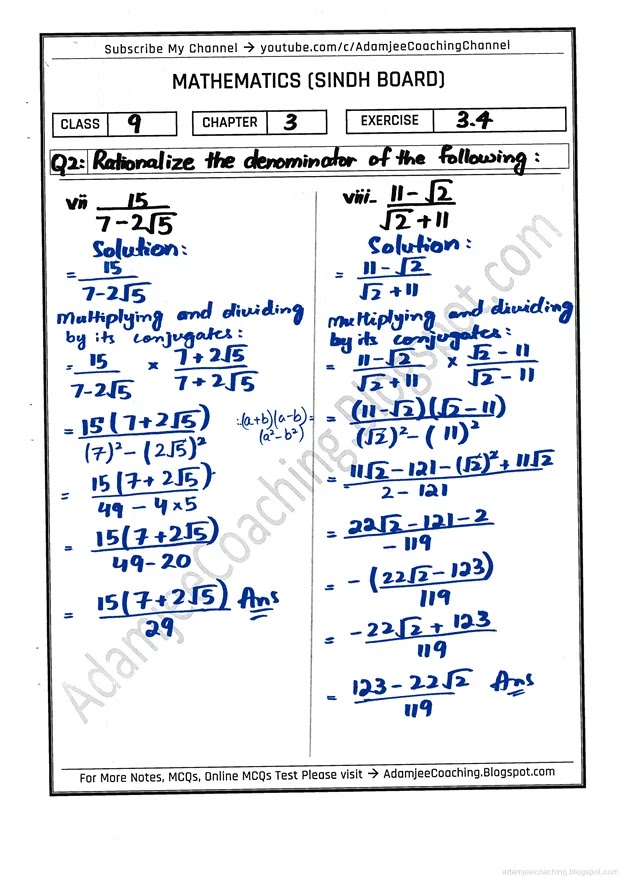 Subscribe My Channel → youtube.com/c/AdamjeeCoachingChannel
MATHEMATICS (SINDH BOARD)
CLASS 9 CHAPTER 3 EXERCISE 3.4
Q2: Rationalize the denominator of the following:
vii 15 / 7 - 2√5
Solution:
= 15 / 7 - 2√5
Multiplying and dividing
by its conjugates:
= 15 / 7 - 2√5 × 7 + 2√5 / 7 + 2√5
= 15(7 + 2√5) / (7)² - (2√5)² ∵(a+b)(a-b)=
(a²-b²)
= 15(7 + 2√5) / 49 - 4×5
= 15(7 + 2√5) / 49 - 20
= 15(7 + 2√5) / 29 Ans
viii- 11 - √2 / √2 + 11
Solution:
= 11 - √2 / √2 + 11
Multiplying and dividing
by its conjugates:
= 11 - √2 / √2 + 11 × √2 - 11 / √2 - 11
= (11 - √2)(√2 - 11) / (√2)² - (11)²
= 11√2 - 121 - (√2)² + 11√2 / 2 - 121
= 22√2 - 121 - 2 / - 119
= - (22√2 - 123) / 119
= -22√2 + 123 / 119
= 123 - 22√2 / 119 Ans
AdamjeeCoaching.blogspot.com
For More Notes, MCQs, Online MCQs Test Please visit → AdamjeeCoaching.Blogspot.com
adamjeecoaching.blogspot.com